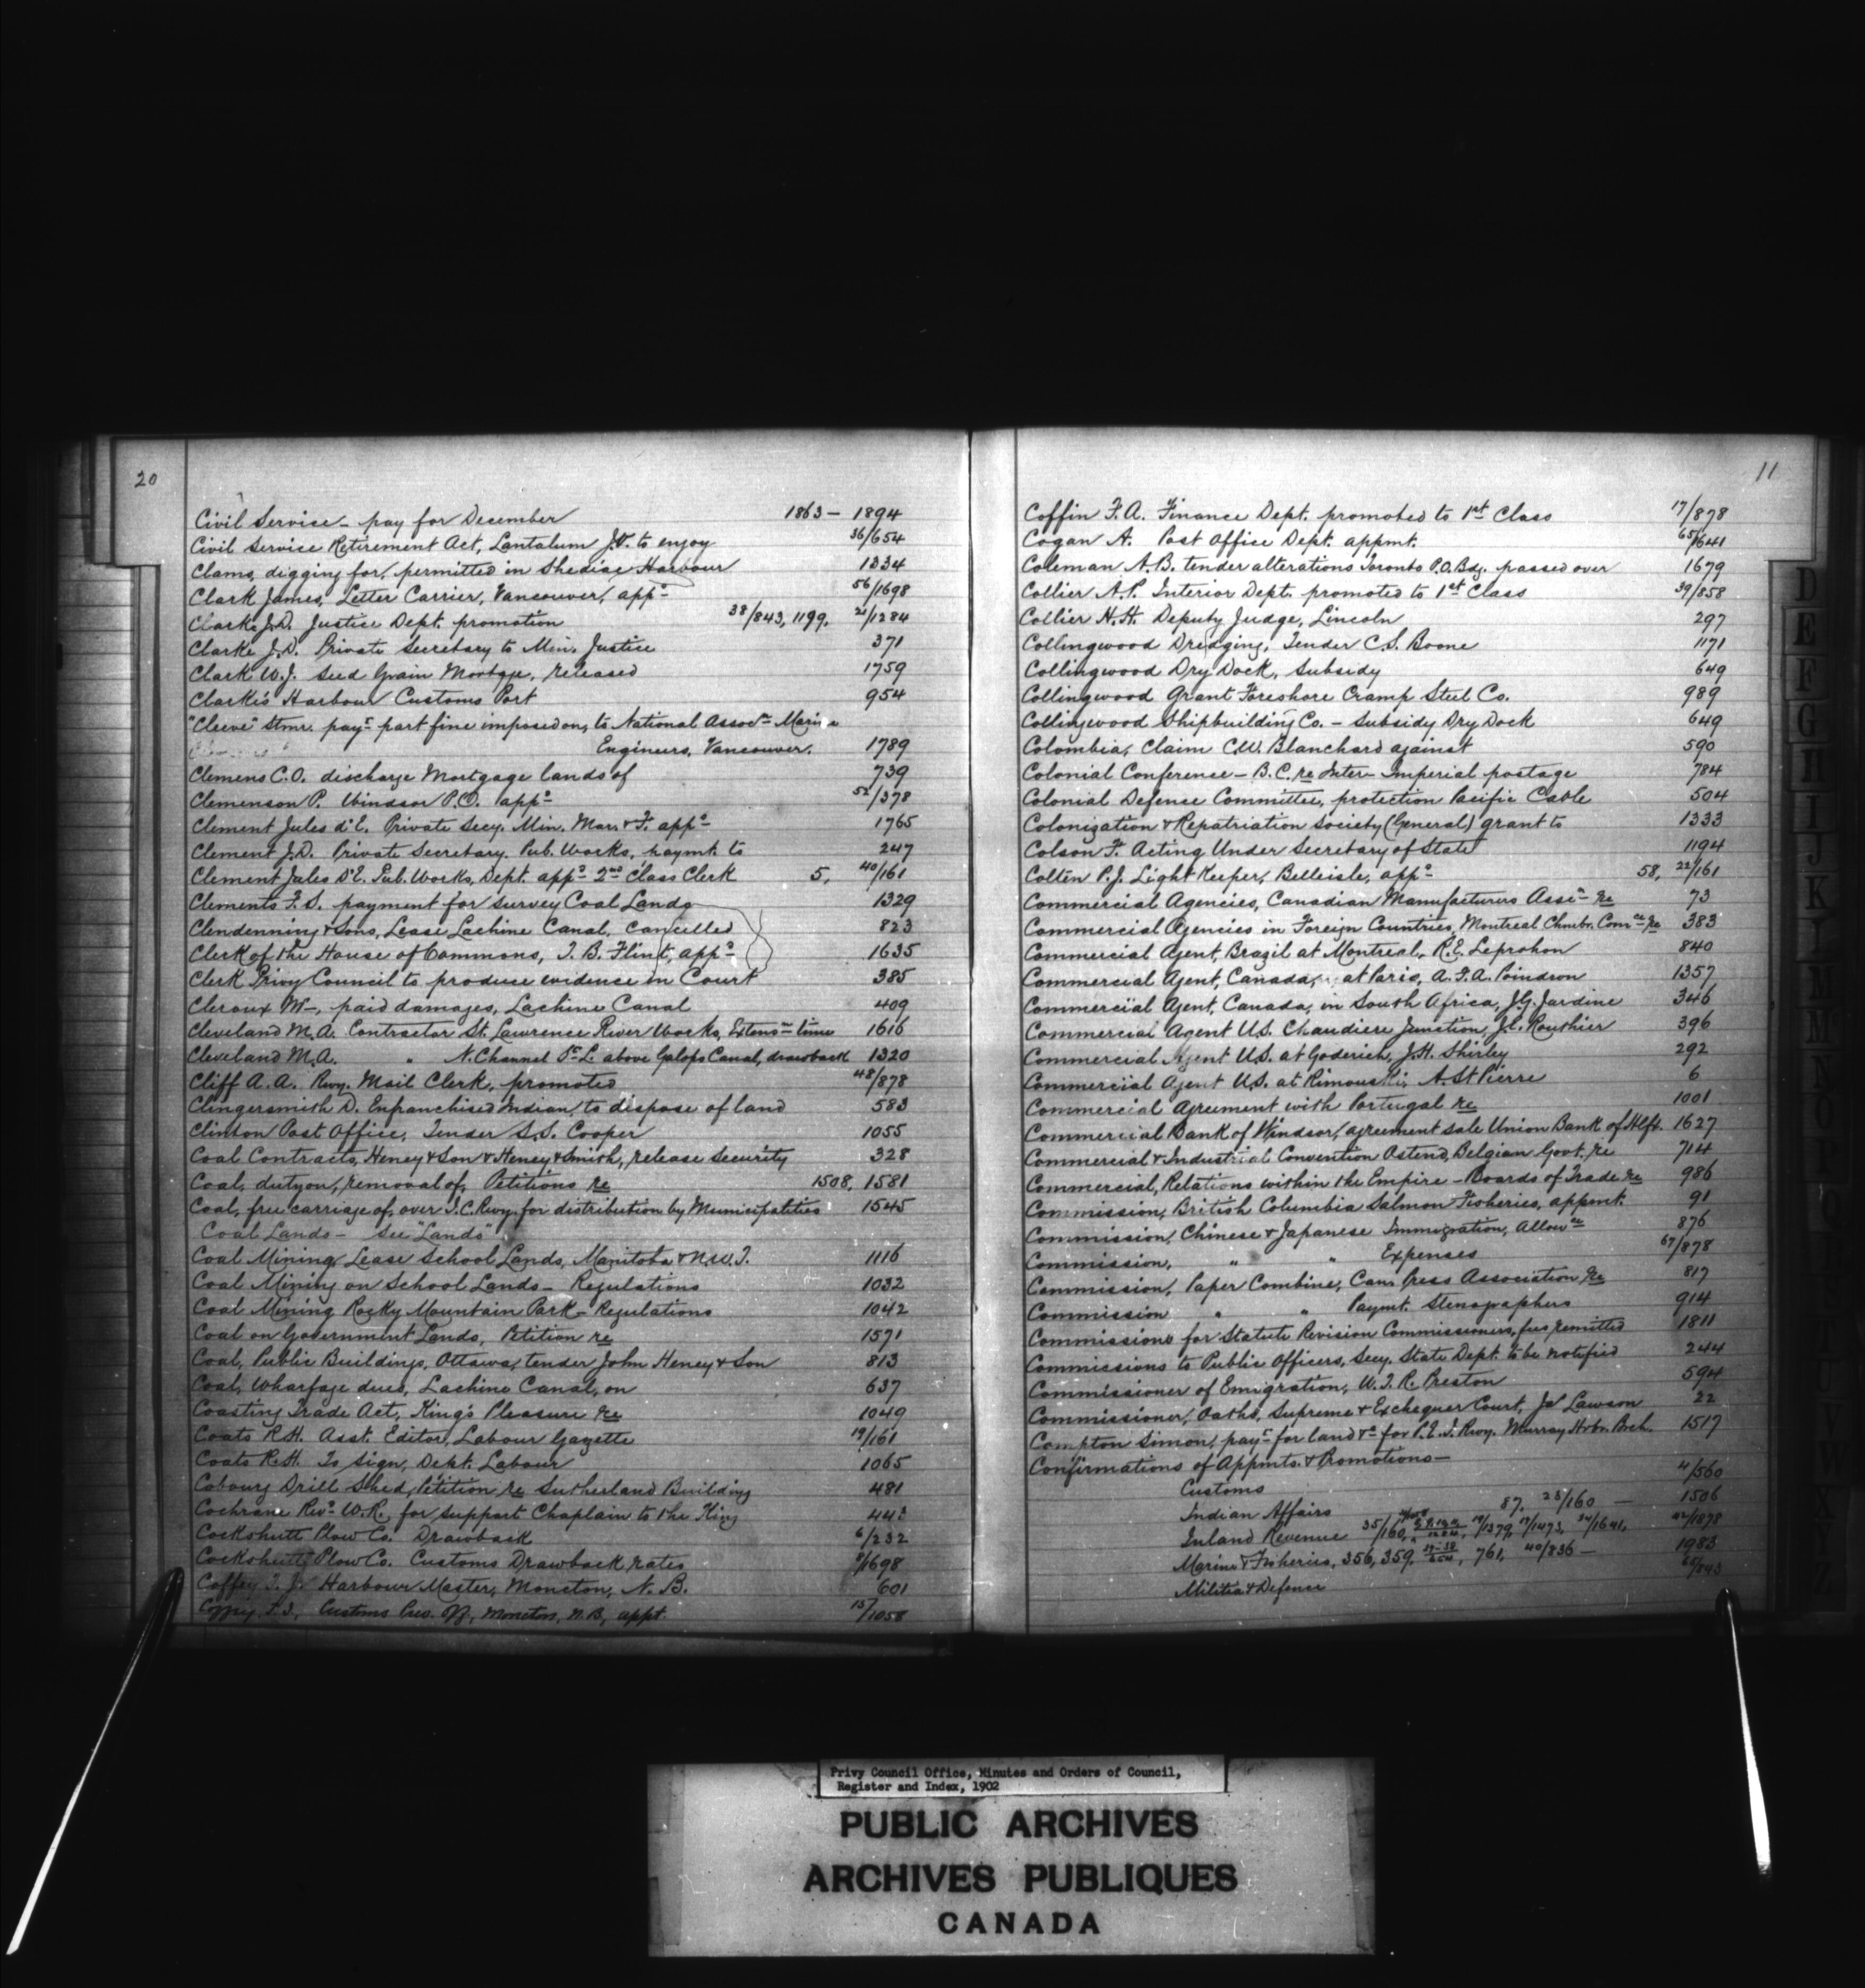 20
Civil Service - pay for December 1863 - 1894
Civil Service Retirement Act, Lantalum J.V. to enjoy 36/654
Clams, digging for, permitted in Shediac Harbour 1334
Clark James, Letter Carrier, Vancouver, appt 56/1698
Clarke J.D. Justice Dept. promotion 38/843, 1199, 21/1284
Clarke J.D. Private Secretary to Min. Justice 371
Clark W.J. Seed Grain Mortgage, released 1759
Clarke's Harbour Customs Port 954
"Cleeve" Stmr. payt part fine imposed on, to National Assocn Marine
Engineers, Vancouver. 1789
Clemens C.O. discharge Mortgage lands of 739
Clemenson P. Windsor P.O. appt 52/378
Clement Jules d'E. Private Secy. Min. Mar. & F. appt 1765
Clement J.D. Private Secretary Pub. Works, paymt. to 247
Clement Jules D'E. Pub. Works, Dept. appt 2nd Class Clerk 5, 40/161
Clements F.S. payment for survey Coal Lands 1329
Clendenning & Sons, Lease Lachine Canal, cancelled 823
Clerk of the House of Commons, T. B. Flint, appt 1635
Clerk Privy Council to produce evidence in Court 385
Cleroux W-, paid damages, Lachine Canal 409
Cleveland M.A. Contractor St. Lawrence River Works, Extensn time 1616
Cleveland M.A. " N. Channel St L. above Galops Canal, drawback 1320
Cliff A.A. Rwy. Mail Clerk, promoted 48/878
Clingersmith D. Enfranchised Indian, to dispose of land 583
Clinton Post Office, Tender S.S. Cooper 1055
Coal Contracts, Heney & Son & Heney & Smith, release security 328
Coal, duty on, removal of, Petitions re 1508, 1581
Coal, free carriage of, over I.C. Rwy. for distribution by Municipalities 1545
Coal Lands - See "Lands"
Coal Mining Lease School Lands, Manitoba & N.W.T. 1116
Coal Mining on School Lands - Regulations 1032
Coal Mining Rocky Mountain Park - Regulations 1042
Coal on Government Lands, Petition re 1571
Coal, Public Buildings, Ottawa, tender John Heney & Son 813
Coal, Wharfage dues, Lachine Canal, on 637
Coasting Trade Act, King's Pleasure re 1049
Coats R.H. Asst. Editor, Labour Gazette 19/161
Coats R.H. To sign, Dept. Labour 1065
Cobourg Drill Shed, Petition re Sutherland Building 481
Cochrane Revd W.R. for support Chaplain to the King 443
Cockshutt Plow Co. Drawback 6/232
Cockshutt Plow Co. Customs Drawback rates 9/1698
Coffey T.J. Harbour Master, Moncton, N.B. 601
Coffey, T.J., Customs Prev. Off, Moncton, N.B, appt. 15/1058
11
Coffin F.A. Finance Dept. promoted to 1st Class 17/878
Cogan A. Post Office Dept. appmt. 65/1641
Coleman A.B. tender alterations Toronto P.O. Bdg. passed over 1679
Collier A.P. Interior Dept. promoted to 1st Class 39/858
Collier H.H. Deputy Judge, Lincoln 297
Collingwood Dredging, Tender C.S. Boone 1171
Collingwood Dry Dock, Subsidy 649
Collingwood Grant Foreshore Cramp Steel Co. 989
Collingwood Shipbuilding Co. - Subsidy Dry Dock 649
Colombia, Claim C.W. Blanchard against 590
Colonial Conference - B.C. re Inter-Imperial postage 784
Colonial Defense Committee, protection Pacific Cable 504
Colonization & Repatriation Society (General) grant to 1333
Colson F. Acting Under Secretary of State 1194
Colten P.J. Light Keeper, Belleisle, appt 58, 22/161
Commercial Agencies, Canadian Manufacturers Assn re 73
Commercial Agencies in Foreign Countries, Montreal Chmbr. Comce re 383
Commercial Agent, Brazil at Montreal, R.E. Leprohon 840
Commercial Agent, Canada, at Paris, A.F.A. Poindron 1357
Commercial Agent, Canada, in South Africa, J.G. Jardine 346
Commercial Agent U.S. Chaudiere Junction, J.C. Routhier 396
Commercial Agent U.S. at Goderich, J.H. Shirley 292
Commercial Agent U.S. at Rimouski, A. St Pierre 6
Commercial Agreement with Portugal re 1001
Commercial Bank of Windsor, agreement sale Union Bank of Hlfx. 1627
Commercial & Industrial Convention Ostend, Belgian Govt. re 714
Commercial, Relations within the Empire - Boards of Trade re 986
Commission, British Columbia Salmon Fisheries, appmt. 91
Commission, Chinese & Japanese Immigration, Allowce 876
Commission, " " Expenses 67/878
Commission, Paper Combine, Can. Press Association re 817
Commission " " Paymt. Stenographers 914
Commissions for Statute Revision Commissioners, fees remitted 1811
Commissions to Public Officers, Secy. State Dept. to be notified 244
Commissioner of Emigration, W.T.R. Preston 594
Commissioner, Oaths, Supreme & Exchequer Court, Js Lawson 22
Compton Simon, payt for land &c for P.E.I. Rwy. Murray Hrbr. Brch. 1517
Confirmations of Appmts. & Promotions -
Customs 4/560
Indian Affairs 87, 28/160 - 1506
Inland Revenue 35/160, 19/1379, 17/1473, 34/1641, 42/1878
Marine & Fisheries, 356, 359, 761, 40/836 - 1983
Militia & Defence
D
E
F
G
H
I
J
K
Privy Council Office, Minutes and Orders of Council,
Register and Index, 1902
PUBLIC ARCHIVES
ARCHIVES PUBLIQUES
CANADA